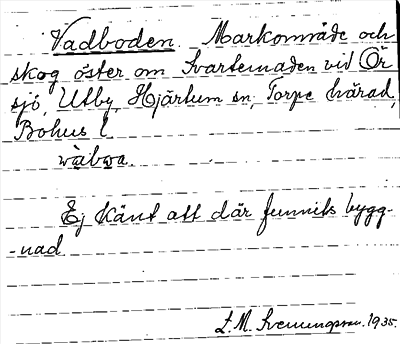 Vadboden. Markområde och
skog öster om Svartemaden vid Ör
sjö, Utby, Hjärtum sn, Torpe härad,
Bohus l.
Ej känt att där funnits bygg-
-nad
L. M. Svenungsson. 1935.